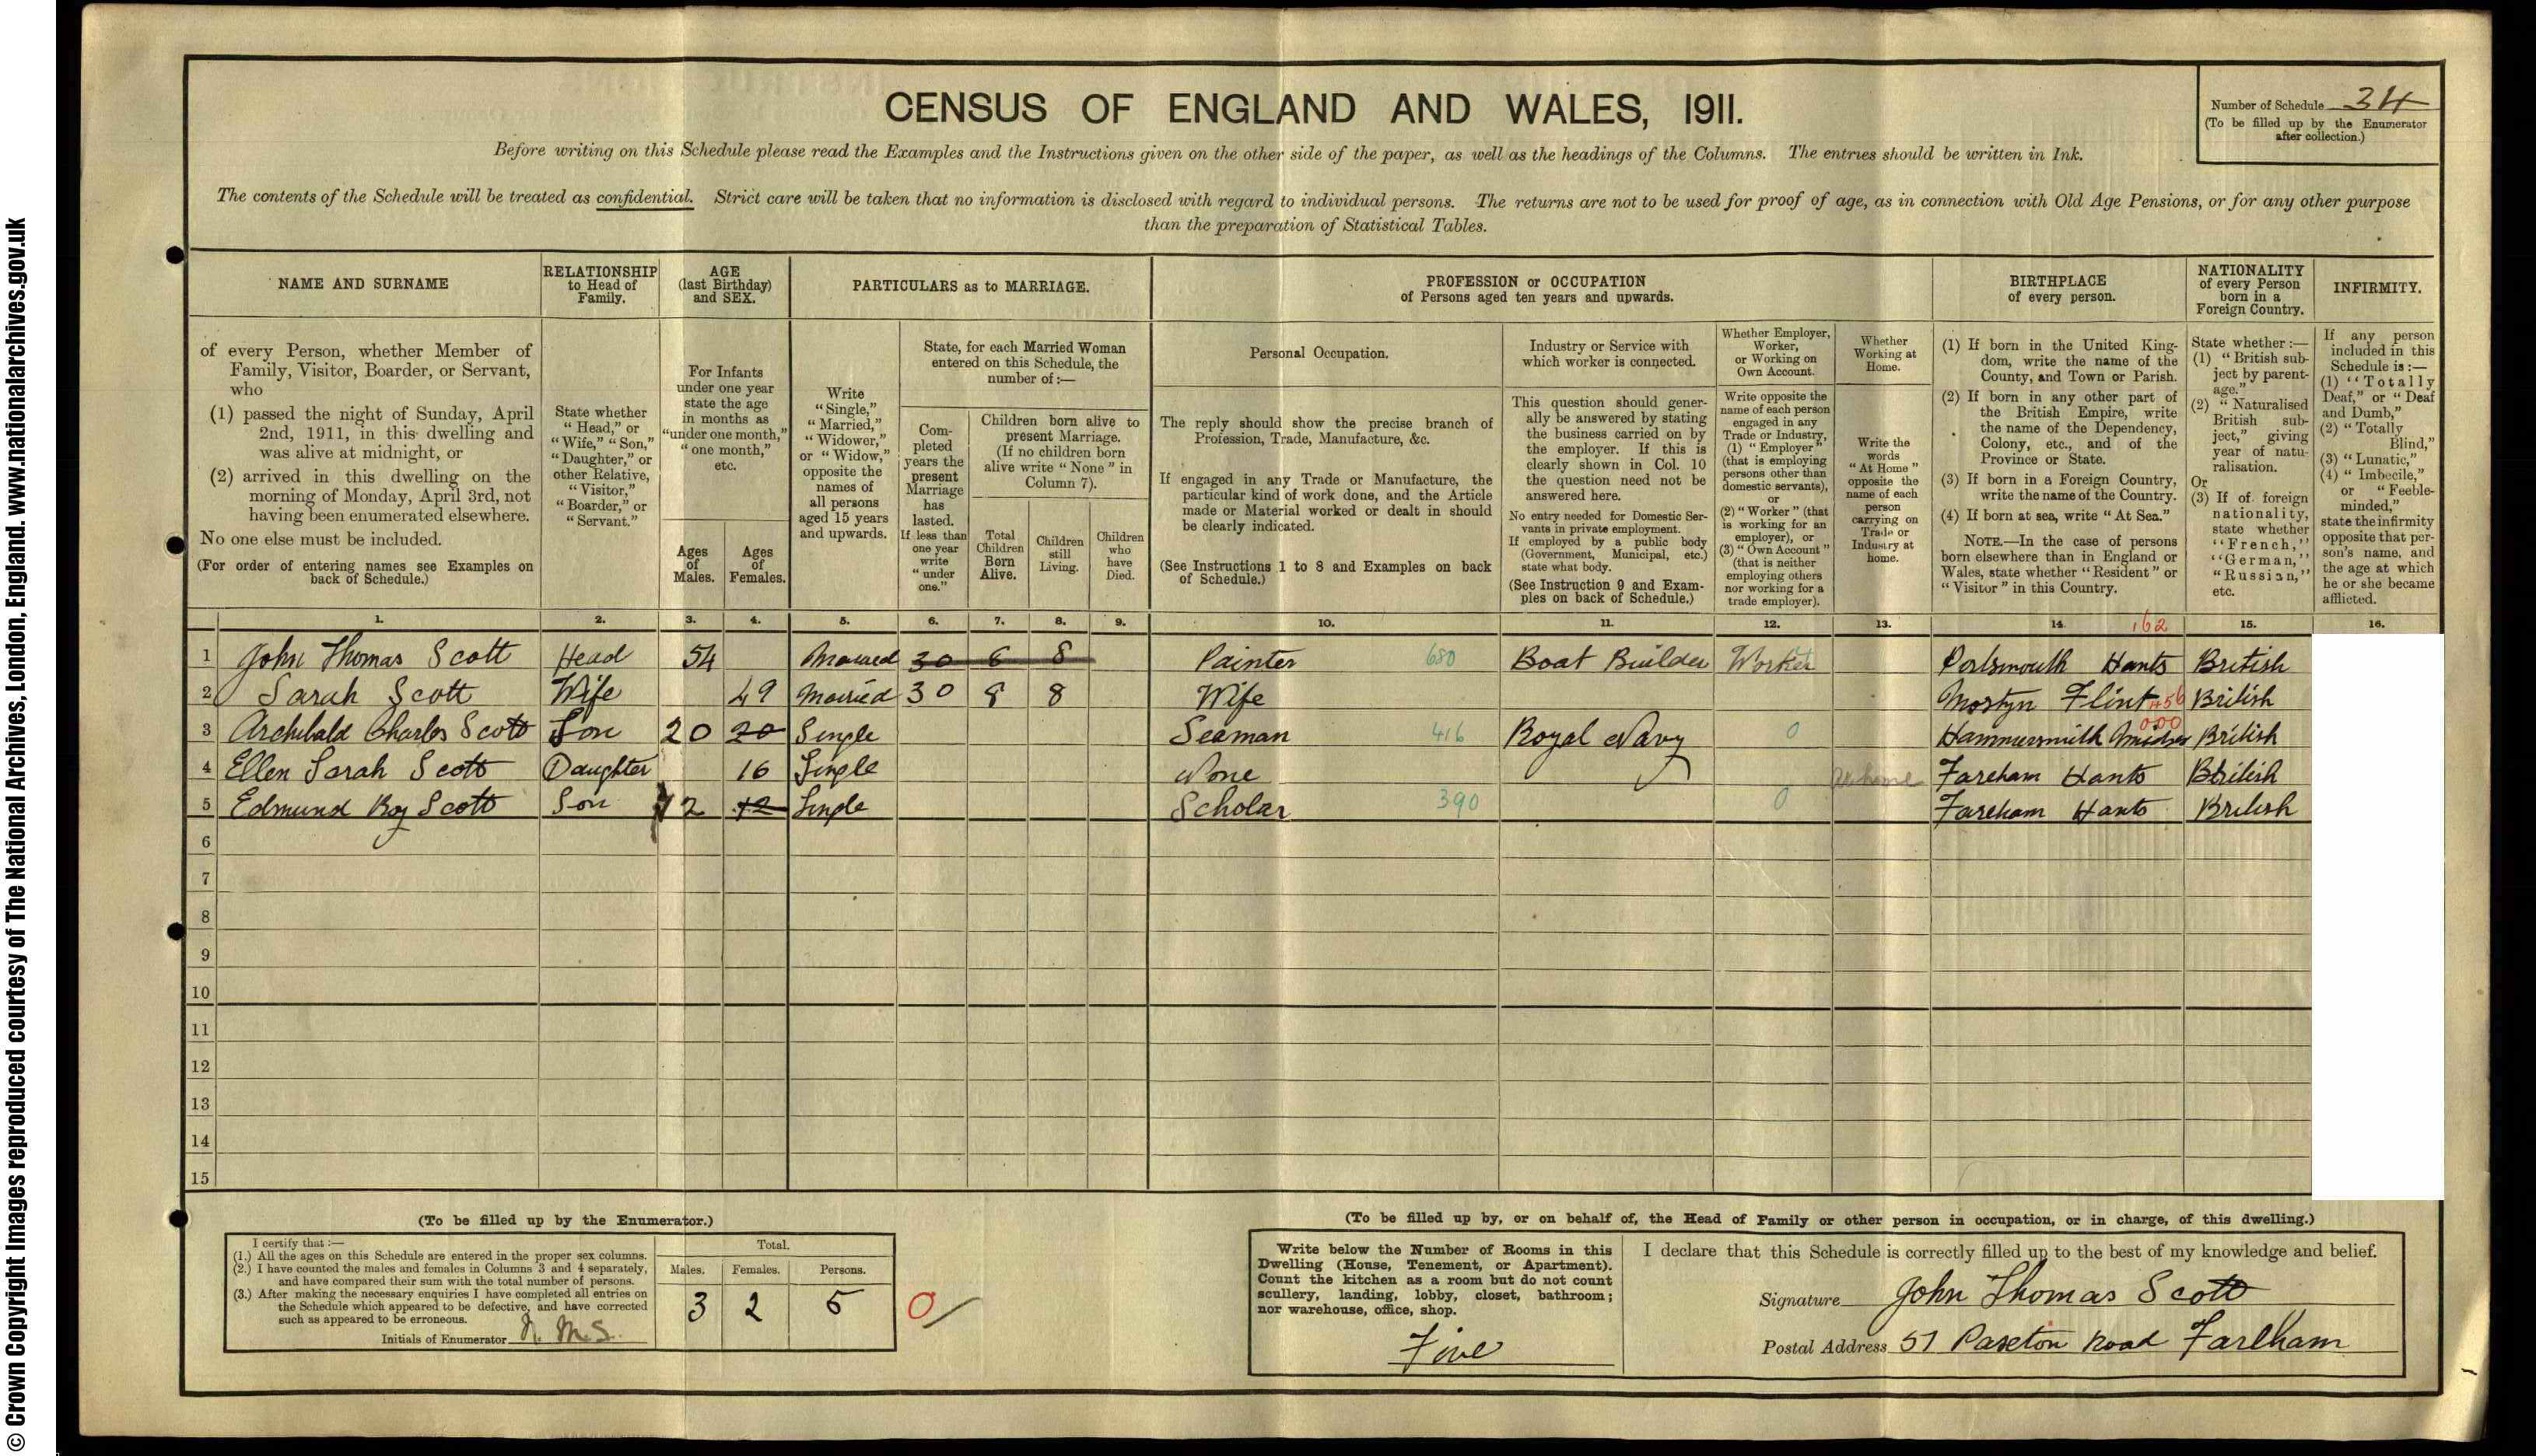 © Crown Copyright Images reproduced courtesy of The National Archives, London, England. www.nationalarchives.gov.uk
CENSUS OF ENGLAND AND WALES, 1911.
Number of Schedule 34
(To be filled up by the Enumerator after collection.)
Before writing on this Schedule please read the Examples and the Instructions given on the other side of the paper, as well as the headings of the Columns. The entries should be written in Ink.
The contents of the Schedule will be treated as confidential. Strict care will be taken that no information is disclosed with regard to individual persons. The returns are not to be used for proof of age, as in connection with Old Age Pensions, or for any other purpose
than the preparation of Statistical Tables.
NAME AND SURNAME
of every Person, whether Member of
Family, Visitor, Boarder, or Servant,
who
(1) passed the night of Sunday, April
2nd, 1911, in this dwelling and
was alive at midnight, or
(2) arrived in this dwelling on the
morning of Monday, April 3rd, not
having been enumerated elsewhere.
No one else must be included.
(For order of entering names see Examples on
back of Schedule.)
RELATIONSHIP
to Head of
Family.
State whether
"Head," or
"Wife," "Son,"
"Daughter," or
other Relative,
"Visitor,"
"Boarder," or
"Servant."
AGE
(last Birthday)
and SEX.
For Infants
under one year
state the age
in months as
"under one month,"
"one month,"
etc.
Ages
of
Males.
Ages
of
Females.
PARTICULARS as to MARRIAGE.
Write
"Single,"
"Married,"
"Widower,"
or "Widow,"
opposite the
names of
all persons
aged 15 years
and upwards.
State, for each Married Woman
entered on this Schedule, the
number of:—
Com-
pleted
years the
present
Marriage
has
lasted.
If less than
one year
write
"under
one."
Children born alive to
present Marriage.
(If no children born
alive write "None" in
Column 7).
Total
Children
Born
Alive.
Children
still
Living.
Children
who
have
Died.
PROFESSION or OCCUPATION
of Persons aged ten years and upwards.
Personal Occupation.
The reply should show the precise branch of
Profession, Trade, Manufacture, &c.
If engaged in any Trade or Manufacture, the
particular kind of work done, and the Article
made or Material worked or dealt in should
be clearly indicated.
(See Instructions 1 to 8 and Examples on back
of Schedule.)
Industry or Service with
which worker is connected.
This question should gener-
ally be answered by stating
the business carried on by
the employer. If this is
clearly shown in Col. 10
the question need not be
answered here.
No entry needed for Domestic Ser-
vants in private employment.
If employed by a public body
(Government, Municipal, etc.)
state what body.
(See Instruction 9 and Exam-
ples on back of Schedule.)
Whether Employer,
Worker,
or Working on
Own Account.
Write opposite the
name of each person
engaged in any
Trade or Industry,
(1) "Employer"
(that is employing
persons other than
domestic servants),
or
(2) "Worker" (that
is working for an
employer), or
(3) "Own Account"
(that is neither
employing others
nor working for a
trade employer).
Whether
Working at
Home.
Write the
words
"At Home"
opposite the
name of each
person
carrying on
Trade or
Industry at
home.
BIRTHPLACE
of every person.
(1) If born in the United King-
dom, write the name of the
County, and Town or Parish.
(2) If born in any other part of
the British Empire, write
the name of the Dependency,
Colony, etc., and of the
Province or State.
(3) If born in a Foreign Country,
write the name of the Country.
(4) If born at sea, write "At Sea."
NOTE.—In the case of persons
born elsewhere than in England or
Wales, state whether "Resident" or
"Visitor" in this Country.
NATIONALITY
of every Person
born in a
Foreign Country.
State whether:—
(1) "British sub-
ject by parent-
age."
(2) "Naturalised
British sub-
ject," giving
year of natu-
ralisation.
Or
(3) If of foreign
nationality,
state whether
"French,"
"German,"
"Russian,"
etc.
INFIRMITY.
If any person
included in this
Schedule is:—
(1) "Totally
Deaf," or "Deaf
and Dumb,"
(2) "Totally
Blind,"
(3) "Lunatic,"
(4) "Imbecile,"
or "Feeble-
minded,"
state the infirmity
opposite that per-
son's name, and
the age at which
he or she became
afflicted.
1. 2. 3. 4. 5. 6. 7. 8. 9. 10. 11. 12. 13. 14. 162 15. 16.
1 John Thomas Scott Head 54 Married 30 6 8 Painter 680 Boat Builder Worker Portsmouth Hants British
2 Sarah Scott Wife 49 Married 30 8 8 Wife Mostyn Flint 456 British
3 Archibald Charles Scott Son 20 20 Single Seaman 416 Royal Navy 0 Hammersmith 000 British
4 Ellen Sarah Scott Daughter 16 Single None At home Fareham Hants British
5 Edmund Roy Scott Son 12 12 Single Scholar 390 0 Fareham Hants British
6
7
8
9
10
11
12
13
14
15
(To be filled up by the Enumerator.)
I certify that:—
(1.) All the ages on this Schedule are entered in the proper sex columns.
(2.) I have counted the males and females in Columns 3 and 4 separately,
and have compared their sum with the total number of persons.
(3.) After making the necessary enquiries I have completed all entries on
the Schedule which appeared to be defective, and have corrected
such as appeared to be erroneous.
Initials of Enumerator
Total.
Males. Females. Persons.
3 2 5
0
(To be filled up by, or on behalf of, the Head of Family or other person in occupation, or in charge, of this dwelling.)
Write below the Number of Rooms in this
Dwelling (House, Tenement, or Apartment).
Count the kitchen as a room but do not count
scullery, landing, lobby, closet, bathroom;
nor warehouse, office, shop.
Five
I declare that this Schedule is correctly filled up to the best of my knowledge and belief.
Signature John Thomas Scott
Postal Address 57 Paxton Road Fareham